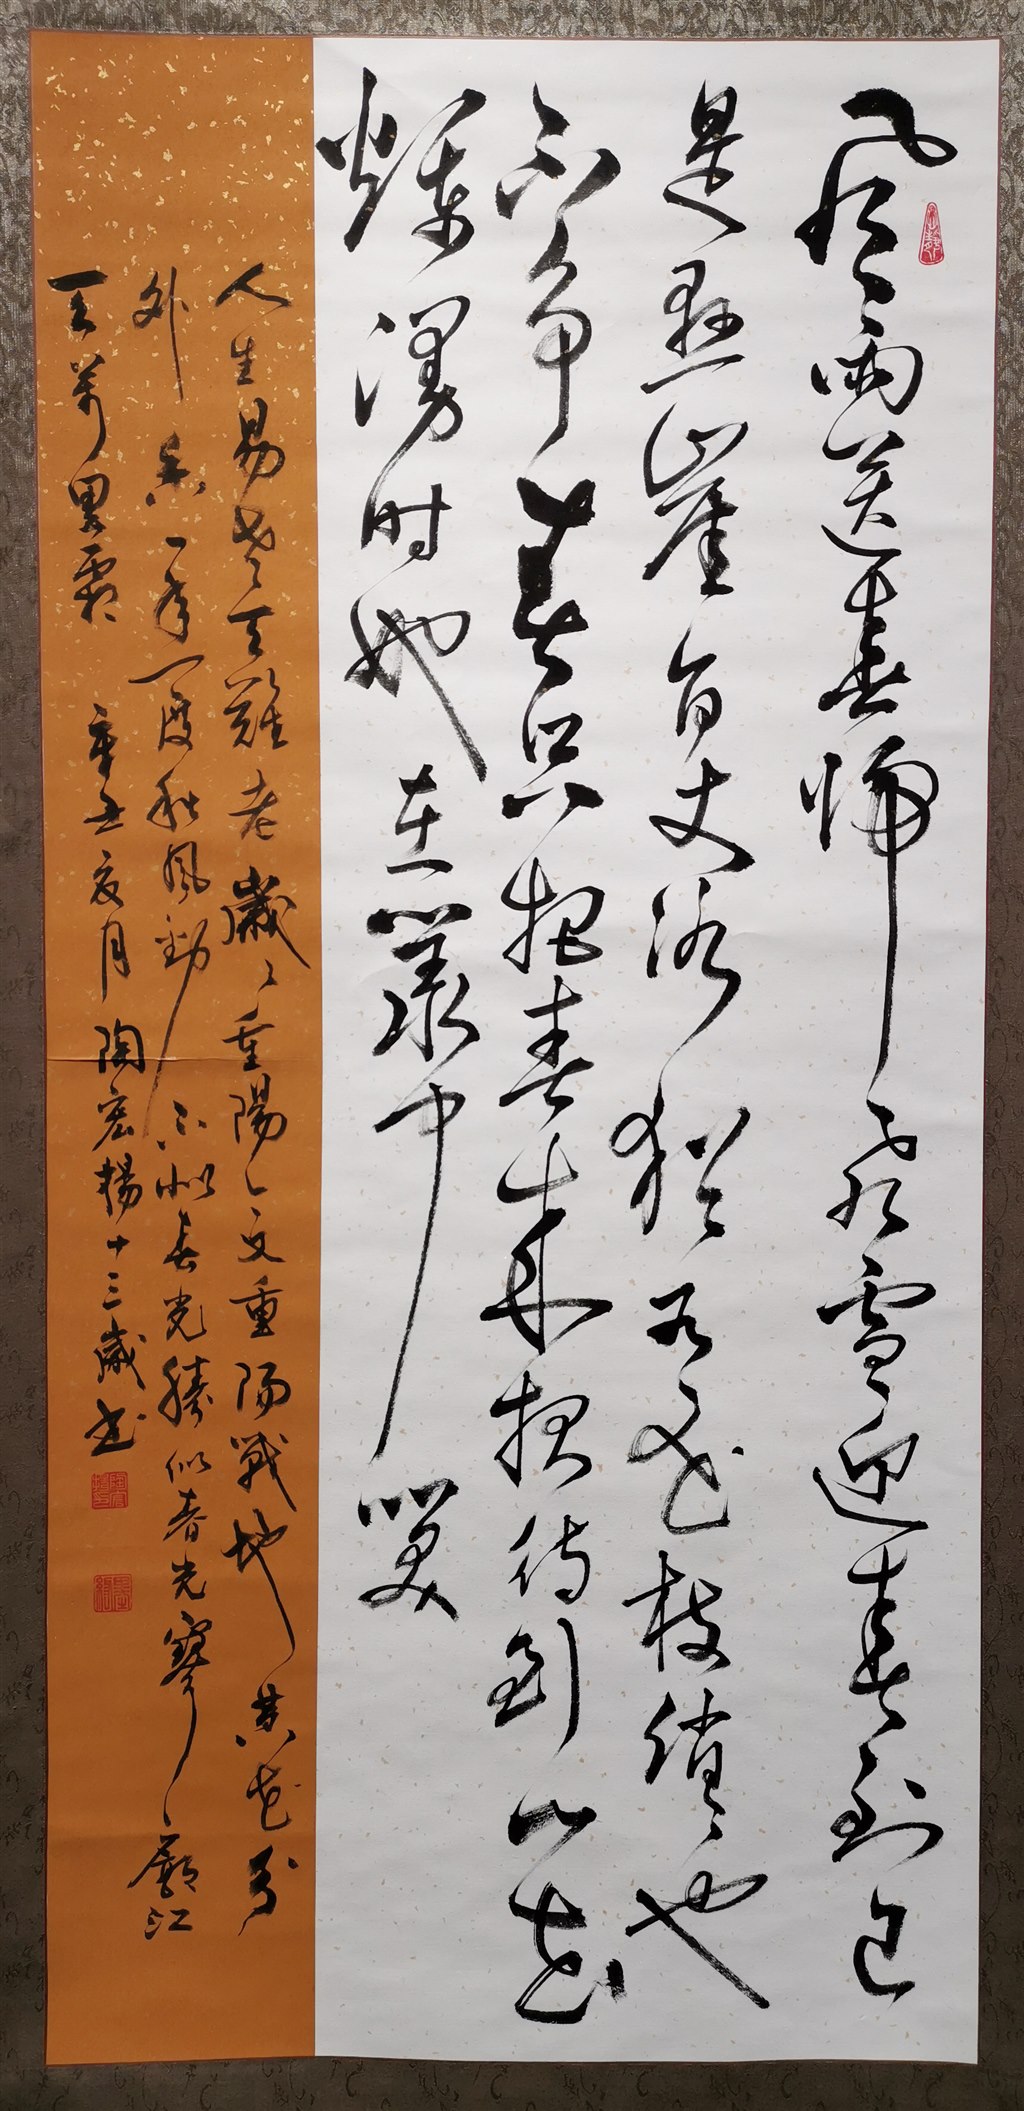 風雨送春歸飛雪迎春到已
是懸崖百丈冰猶有花枝俏々也
不爭春只把春來報待到山花
爛漫时她在叢中笑
人生易老天難老歲々重陽今又重陽戰地黄花分
外香一年一度秋風勁不似春光勝似春光寥廓江
天萬里霜 辛丑夏月 陶宏楊十三歲书